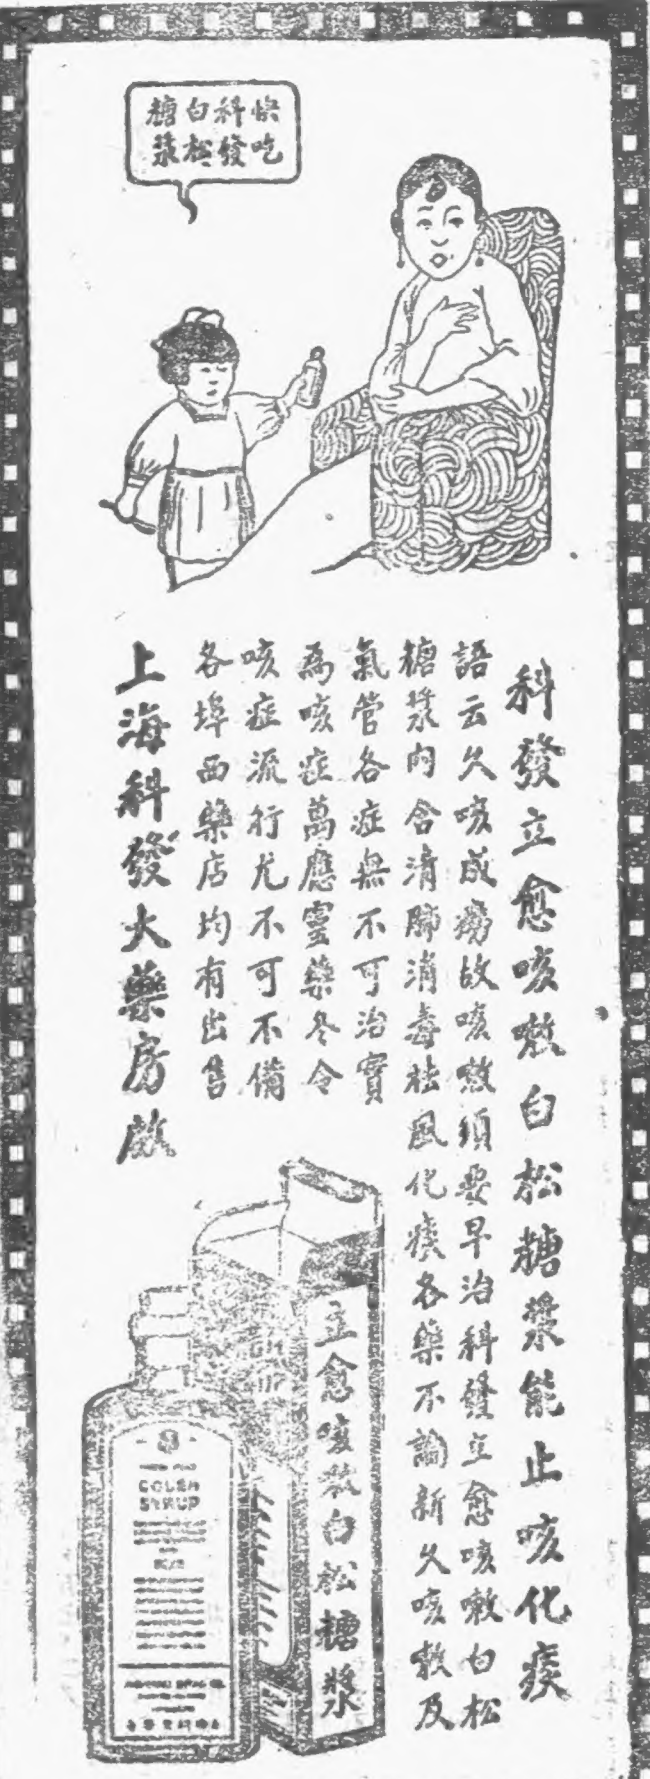 快吃
科發
白松
糖漿
科發立愈咳嗽白松糖漿能止咳化痰
語云久咳成癆故咳嗽須要早治科發立愈咳嗽白松
糖漿內含清肺消毒祛風化痰各藥不論新久咳嗽及
氣管各症無不可治實
為咳症萬應靈藥冬令
咳症流行尤不可不備
各埠西藥店均有出售
上海科發大藥房啟
立愈咳嗽白松糖漿
COUGH
SYRUP